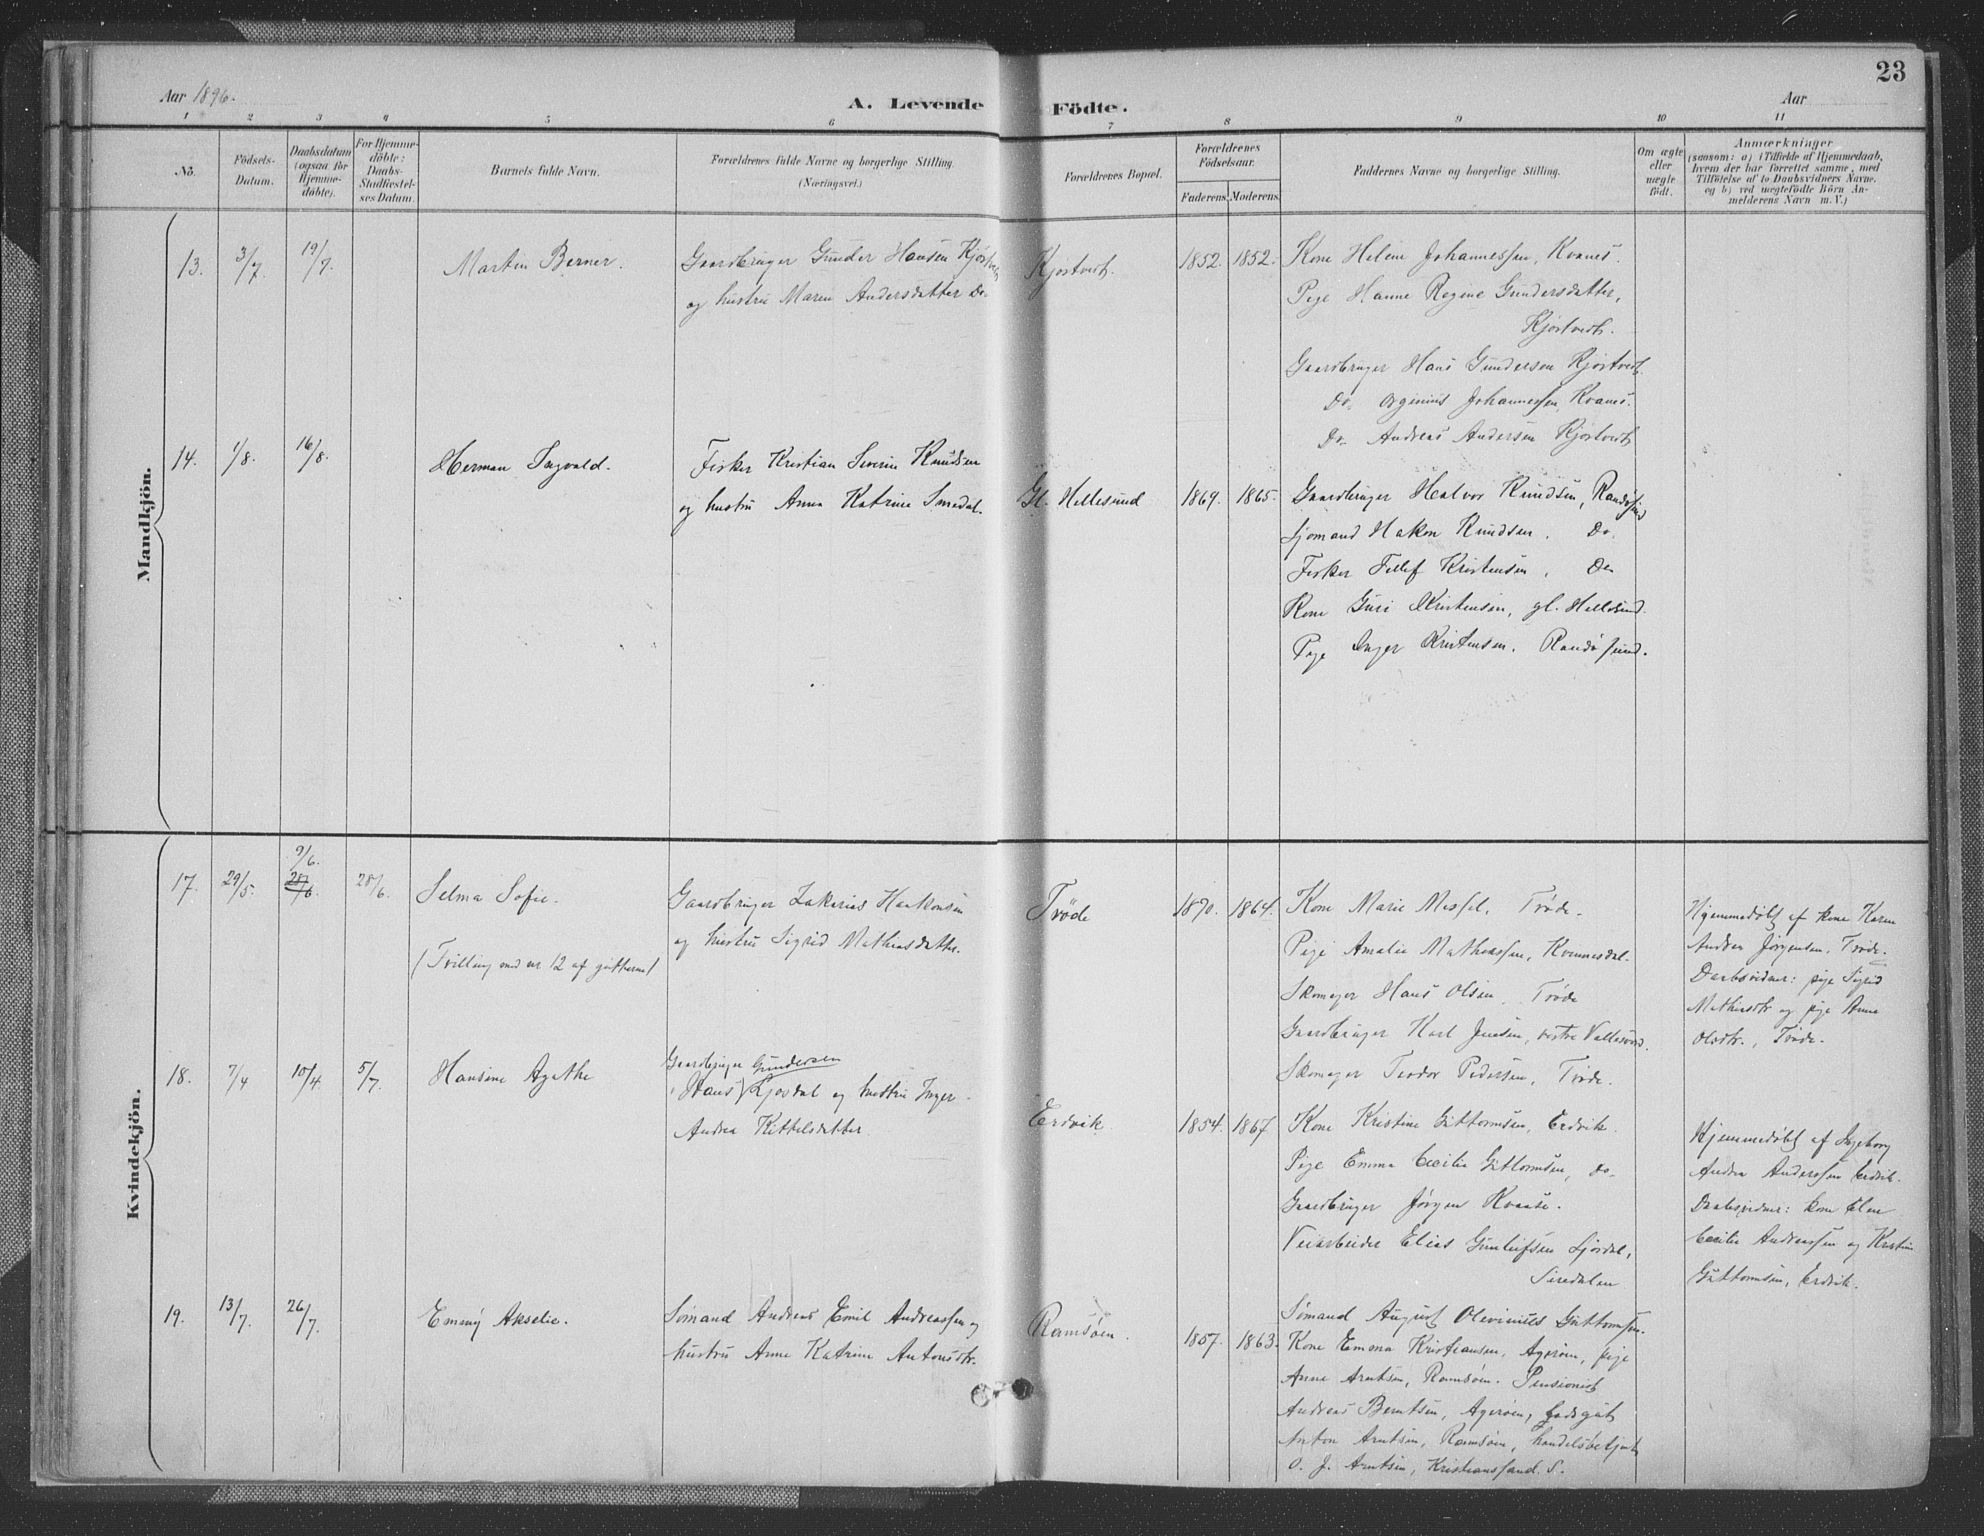 23
Aar 1896.
A. Levende Födte.
Aar
1 2 3 4 5 6 7 8 9 10 11
No.
Födsels-
Datum.
Daabsdatum
(ogsaa for
Hjemme-
döbte).
For Hjemme-
döbte:
Daabs-
Stadfæstel-
ses Datum.
Barnets fulde Navn.
Forældrenes fulde Navne og borgerlige Stilling.
(Næringsvei.)
Forældrenes Bopæl.
Forældrenes
Födselsaar.
Faderens. Moderens.
Faddernes Navne og borgerlige Stilling.
Om ægte
eller
uægte
födt.
Anmærkninger
(saasom: a) i Tilfælde af Hjemmedaab,
hvem der har forrettet samme, med
Tilföielse af to Daabsvidners Navne.
og b) ved uægtefödte Börn An-
melderens Navn m. V.)
Mandkjön.
13. 3/7. 19/7. Martin Berner.
Gaardbruger Gunder Hansen Kjöstvedt
og hustru Maren Andersdatter Do.
Kjöstvedt. 1852. 1852.
Kone Helene Johannessen, Kvanes.
Pige Hanne Regine Gundersdatter,
Kjöstvedt.
Gaardbruger Hans Gundersen Kjöstvedt.
Do. Johannessen, Kvanes.
Do. Andreas Andersen Kjöstvedt
14. 1/8. 16/8. Herman Ingvald.
Fisker Kristian Severin Knudsen
og hustru Anna Katrine Smedal.
Gl. Hellesund 1869. 1865.
Gaardbruger Halvor Knudsen, Randösund
Sjömand Hakon Knudsen. Do.
Fisker Tellef Kristensen. Do
Kone Guri Kristensen, gl. Hellesund.
Pige Inger Kristensen. Randösund.
Kvindekjön.
17. 29/5. 9/6. 28/6. 28/6. Selma Sofie.
(Tvilling med nr. 12 af gutterne)
Gaardbruger Zakarias Haakonsen
og hustru Sigrid Mathiasdatter.
Tröde 1870. 1864.
Kone Marie Messel, Tröde.
Pige Amalie Mathiassen, Kvinnesdal.
Skomager Hans Olsen, Tröde
Gaardbruger Karl Jensen, vestre Vallesværd.
Skomager Teodor Pedersen, Tröde.
Hjemmedöbt af kone Karen
Andrea Jörgensen, Tröde.
Daabsvidner: pige Sigrid
Mathiasdtr og pige Anne
Olsdtr., Tröde.
18. 7/4 10/4. 5/7. Hansine Agathe
Gaardbruger Gundersen
Hans) Ljosdal og hustru Inger
Andrea Kittelsdatter.
Erdvik. 1854. 1867.
Kone Kristine Guttormsen, Erdvik.
Pige Emma Cecilie Guttormsen, do
Gaardbruger Jörgen Kvaase.
Veiarbeider Elias Gunleifsen Ljosdal,
Siredalen
Hjemmedöbt af Ingeborg
Andrea Anderssen Erdvik.
Daabsvidner: kone Elen
Cecilie Andreassen og Kristine
Guttormsen, Erdvik.
19. 13/7. 26/7. Emmy Akselie.
Sömand Andreas Emil Andreassen og
hustru Anne Katrine Antonsdtr.
Ramsöen. 1857. 1863.
Sömand August Olevinius Guttormsen.
Kone Emma Kristiansen, Ageröen, pige
Anne Arntsen, Ramsöen. Pensionist
Andreas Berntsen, Ageröen, Losgut
Anton Arntsen, Ramsöen, handelsbetjent
O. J. Arntsen, Kristianssand S.